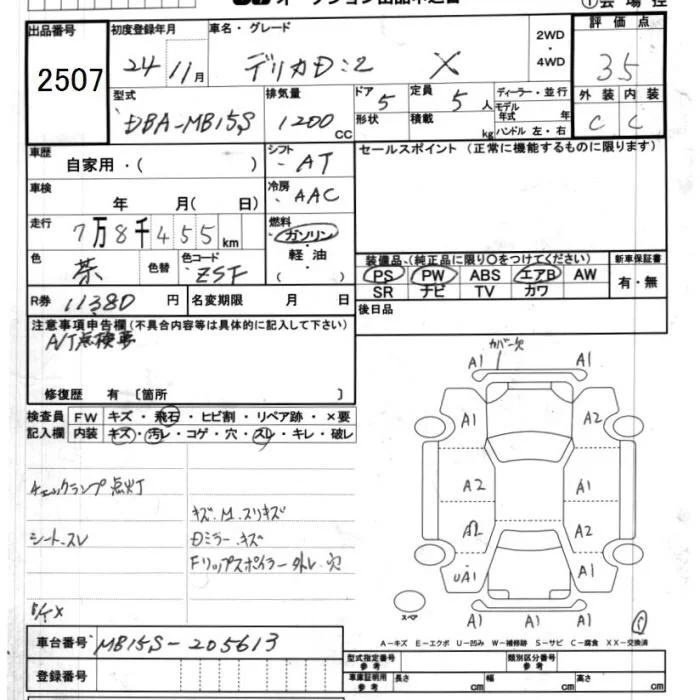 オークション出品申込書
①会場控
出品番号 2507
初度登録年月 24 11月
車名・グレード デリカD:2 X
2WD・4WD
評価点 3.5
型式 DBA-MB15S
排気量 1200 CC
ドア 5
形状
定員 5人
積載 kg
ディーラー・並行
モデル年式 年
ハンドル 左・右
外装 C
内装 C
車歴 自家用・( )
シフト AT
セールスポイント (正常に機能するものに限ります)
車検 年 月( 日)
冷房 AAC
走行 7万8千455km
燃料 ガソリン・軽油・( )
色 茶 色替
色コード ZSF
装備品(純正品に限り○をつけてください)
PS PW ABS エアB AW
SR ナビ TV カワ
新車保証書 有・無
R券 11380円
名変期限 月 日
後日品
注意事項申告欄(不具合内容等は具体的に記入して下さい)
A/T点検要
修復歴 有 〔箇所 〕
検査員記入欄
FW キズ・飛石・ヒビ割・リペア跡・×要
内装 キズ・汚レ・コゲ・穴・スレ・キレ・破レ
チェックランプ点灯
キズ.M.スリキズ
シート.スレ
Dミラー.キズ
Fリップスポイラー外レ.欠
カバー欠
A1 A1
A1 A2
A2 A1
A2 A2
UA1 A1
A1 A1 A1
スペア
A-キズ E-エクボ U-凹み W-補修跡 S-サビ C-腐食 XX-交換済
車台番号 MB15S-205613
登録番号
型式指定番号参考
類別区分番号参考
車庫証明用参考 長さ cm 幅 cm 高さ cm